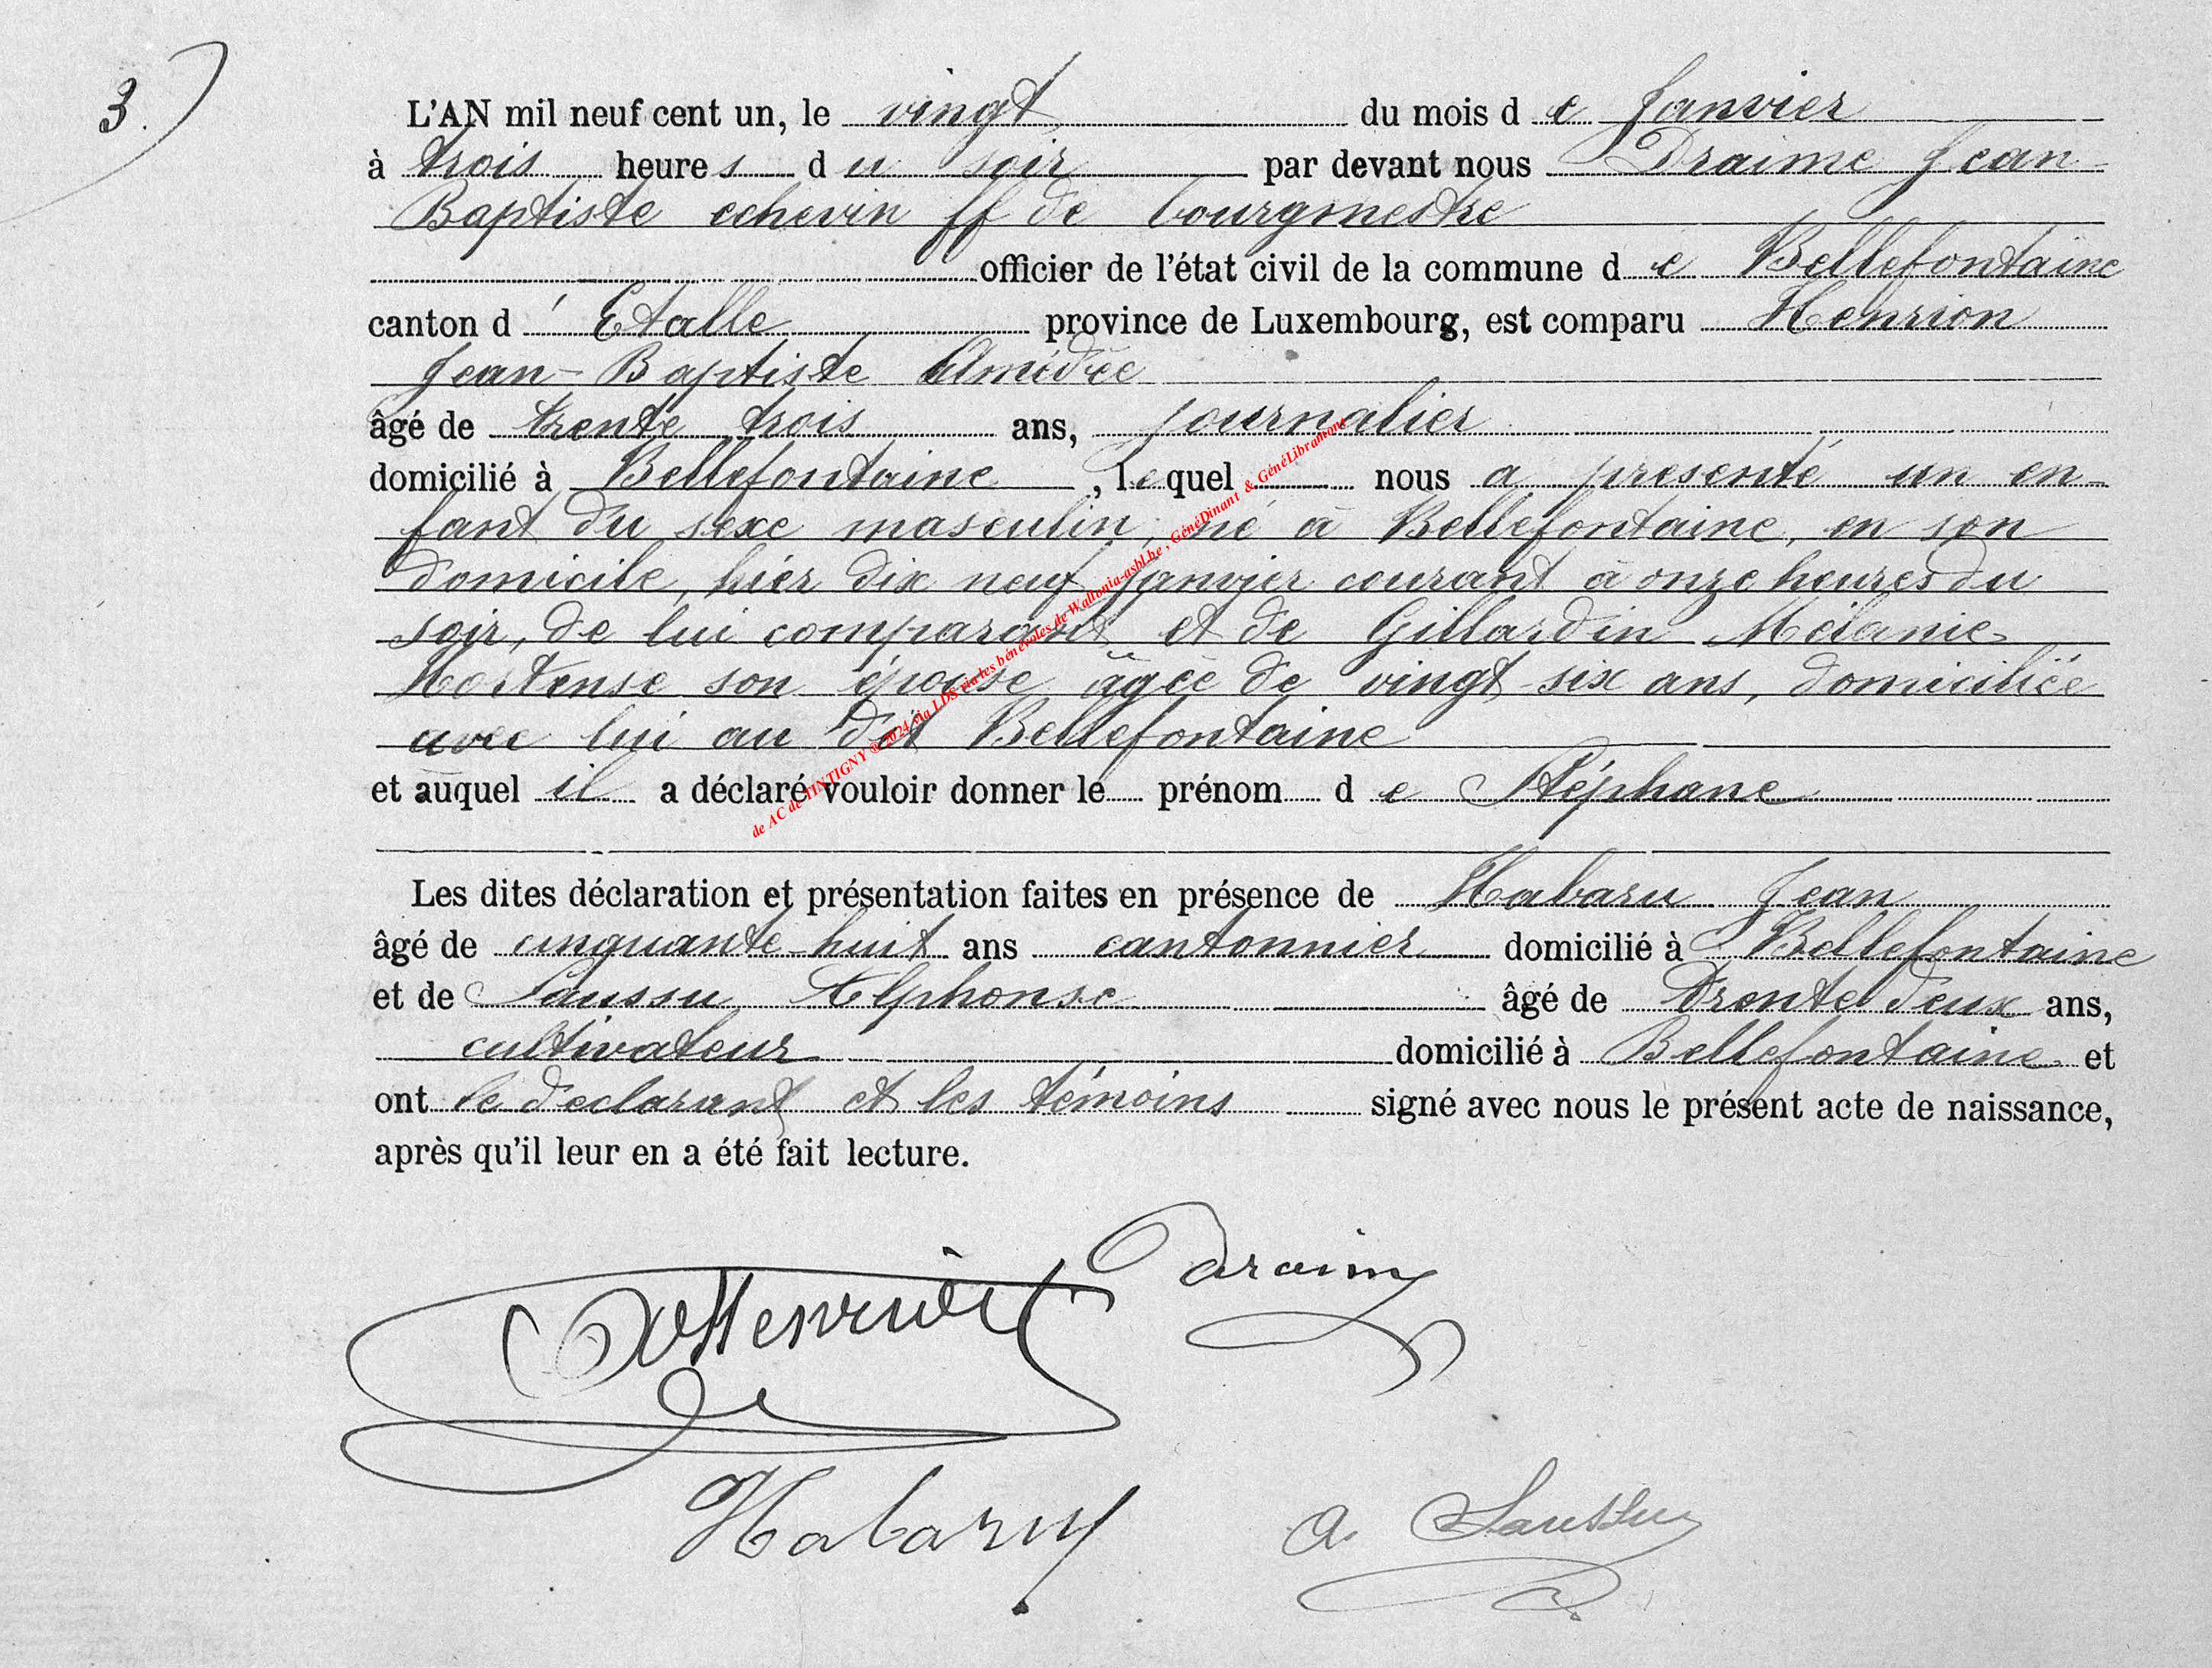 3.)
L'AN mil neuf cent un, le vingt du mois de Janvier
à trois heures du soir par devant nous Draime Jean-
Baptiste echevin ff de bourgmestre
officier de l'état civil de la commune de Bellefontaine
canton d'Etalle province de Luxembourg, est comparu Henrion
Jean-Baptiste Amédée
âgé de trente trois ans, journalier
domicilié à Bellefontaine, lequel nous a présenté un en-
fant du sexe masculin, né à Bellefontaine, en son
domicile, hier dix neuf Janvier courant à onze heures du
soir, de lui comparant et de Gillardin Mélanie-
Hortense son épouse âgée de vingt-six ans, domiciliée
avec lui au dit Bellefontaine
et auquel il a déclaré vouloir donner le prénom de Stéphane
Les dites déclaration et présentation faites en présence de Habaru Jean
âgé de cinquante-huit ans cantonnier domicilié à Bellefontaine
et de Saussu Alphonse âgé de trente deux ans,
cultivateur domicilié à Bellefontaine et
ont le déclarant et les témoins signé avec nous le présent acte de naissance,
après qu'il leur en a été fait lecture.
de AC de TINTIGNY @ 2024 via LDS via les bénévoles de Wallonia-asbl.be , GénéDinant & GénéLibramont
Draime
Henrion
Habaru
A. Saussu